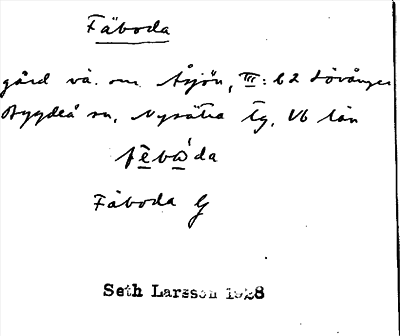 Fäboda
gård vä. om Åsjön, III: 62 Lövånger
Bygdeå sn, Nysätra tg, Vb län
Fäboda G
Seth Larsson 1928